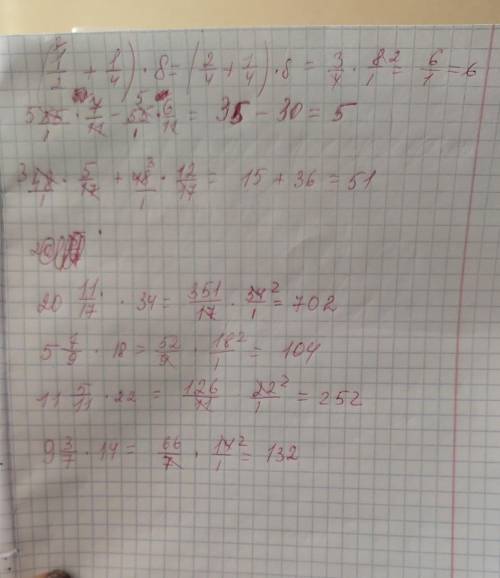 (1/2 + 1/4) · 8 = (2/4 + 1/4) · 8 = 3/4 · 8 2/1 = 6/1 = 6
5 55/1 · 7/11 - 5 55/1 · 6/11 = 35 - 30 = 5
3 48/1 · 5/17 + 48 3/1 · 12/17 = 15 + 36 = 51
20 11/17 · 34 = 351/17 · 34 2/1 = 702
5 7/9 · 18 = 52/9 · 18 2/1 = 104
11 5/11 · 22 = 126/11 22 2/1 = 252
9 3/7 · 14 = 66/7 · 14 2/1 = 132